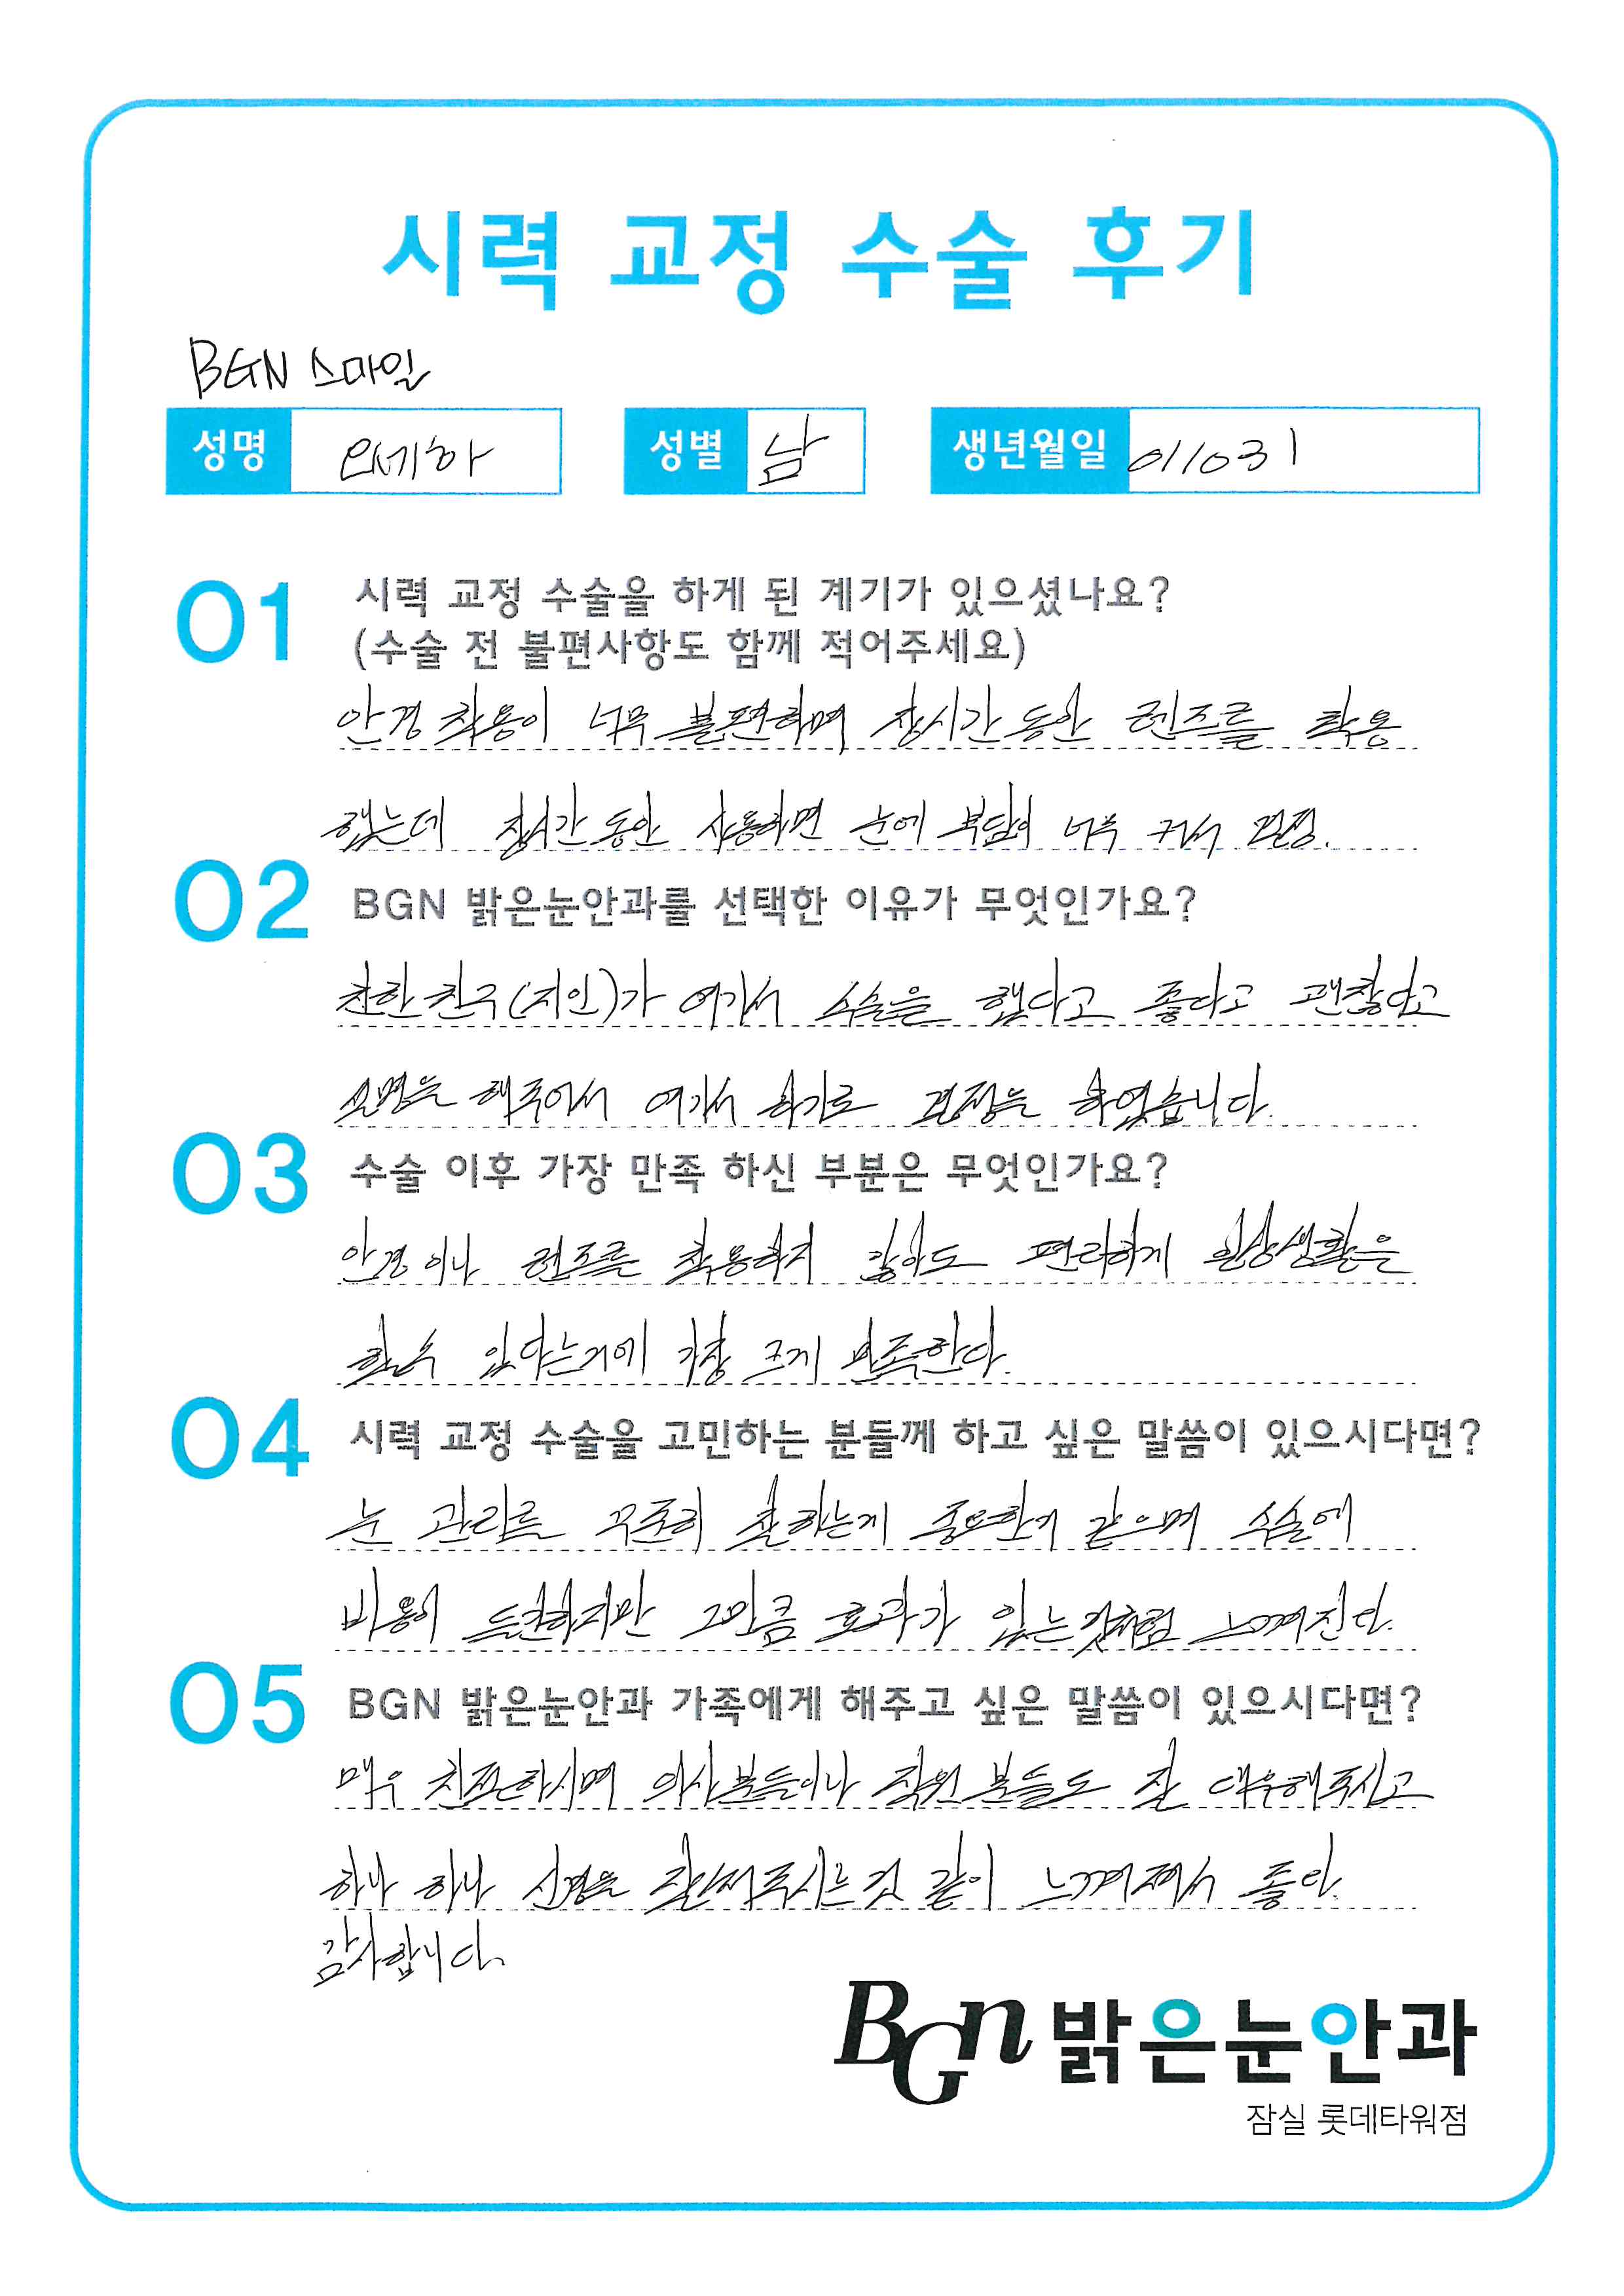 시력 교정 수술 후기
BGN 스마일
성명 인세하 성별 남 생년월일 011031
01 시력 교정 수술을 하게 된 계기가 있으셨나요?
(수술 전 불편사항도 함께 적어주세요)
안경 착용이 너무 불편하며 장시간 동안 렌즈를 착용
했는데 장시간 동안 사용하면 눈에 부담이 너무 커서 결정.
02 BGN 밝은눈안과를 선택한 이유가 무엇인가요?
친한 친구(지인)가 여기서 수술을 했다고 좋다고 괜찮다고
설명을 해주어서 여기서 하기로 결정을 하였습니다.
03 수술 이후 가장 만족 하신 부분은 무엇인가요?
안경이나 렌즈를 착용하지 않아도 편리하게 일상생활을
할수 있다는거에 가장 크게 만족한다.
04 시력 교정 수술을 고민하는 분들께 하고 싶은 말씀이 있으시다면?
눈 관리를 꾸준히 잘 하는게 중요한거 같으며 수술에
비용이 득천하지만 그만큼 효과가 있는것처럼 느껴진다.
05 BGN 밝은눈안과 가족에게 해주고 싶은 말씀이 있으시다면?
매우 친절하시며 의사분들이나 직원 분들도 잘 대우해주시고
하나 하나 신경을 잘써주시는 것 같이 느껴져서 좋다.
감사합니다.
BGN 밝은눈안과
잠실 롯데타워점